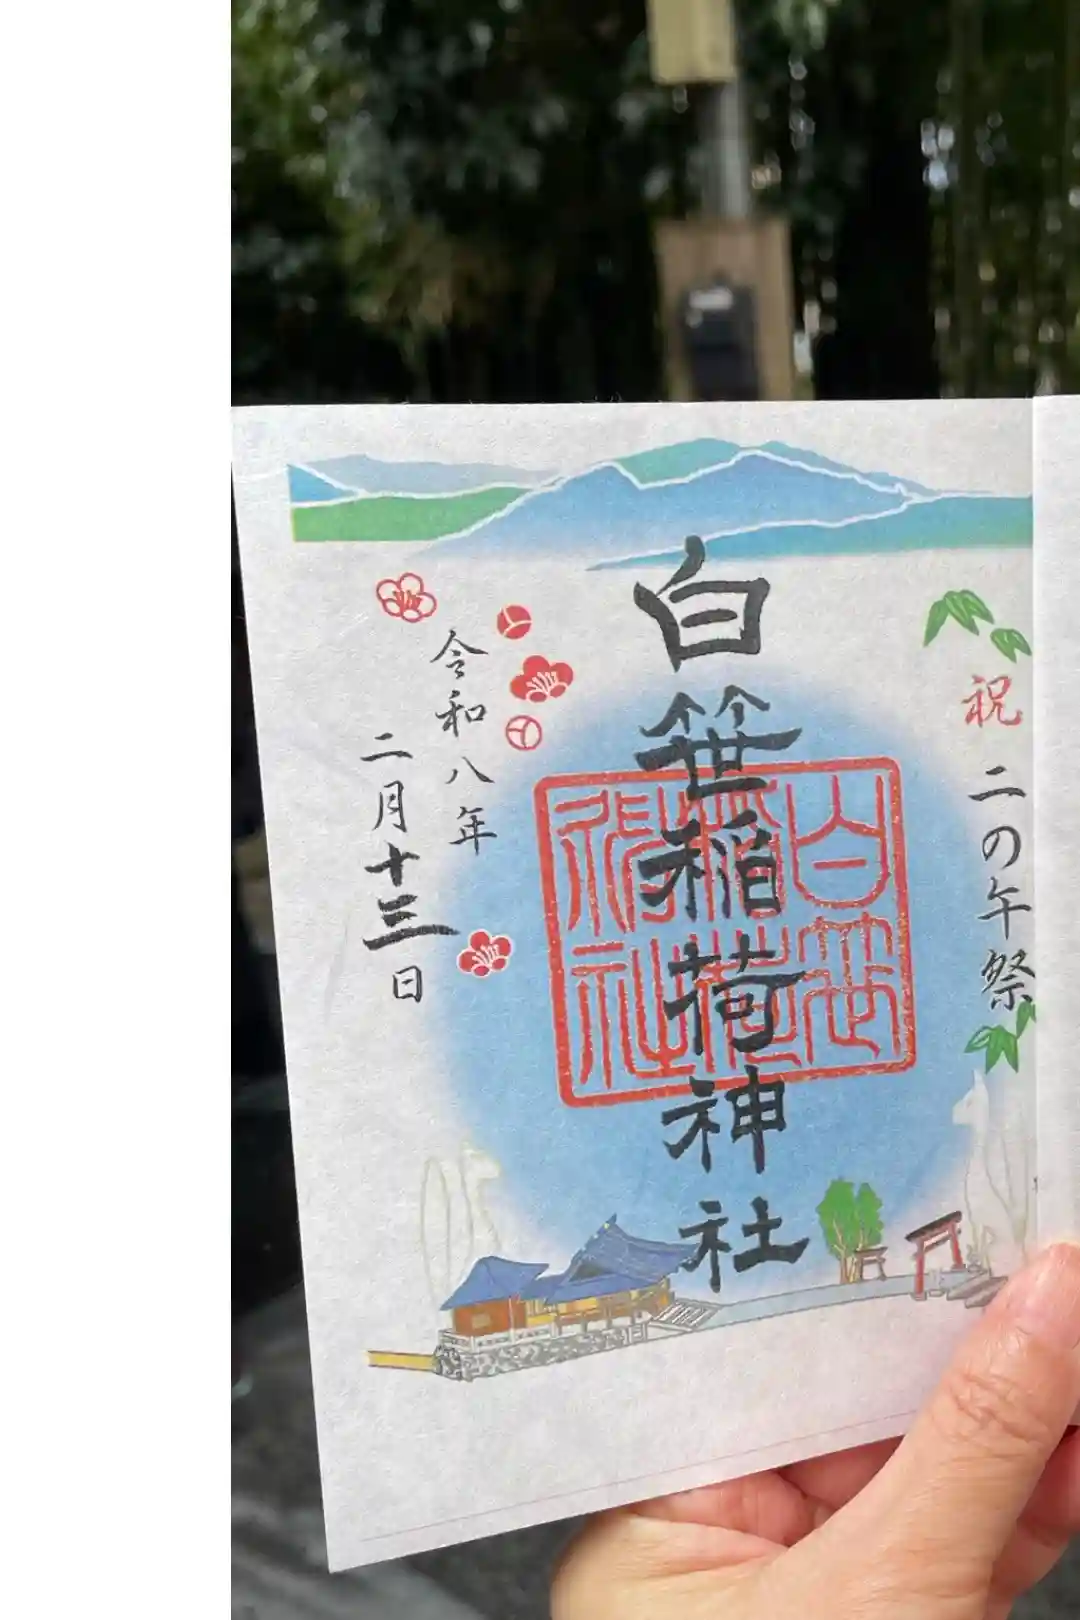 祝 二の午祭
白笹稲荷神社
白笹稲荷神社
令和八年
二月十三日